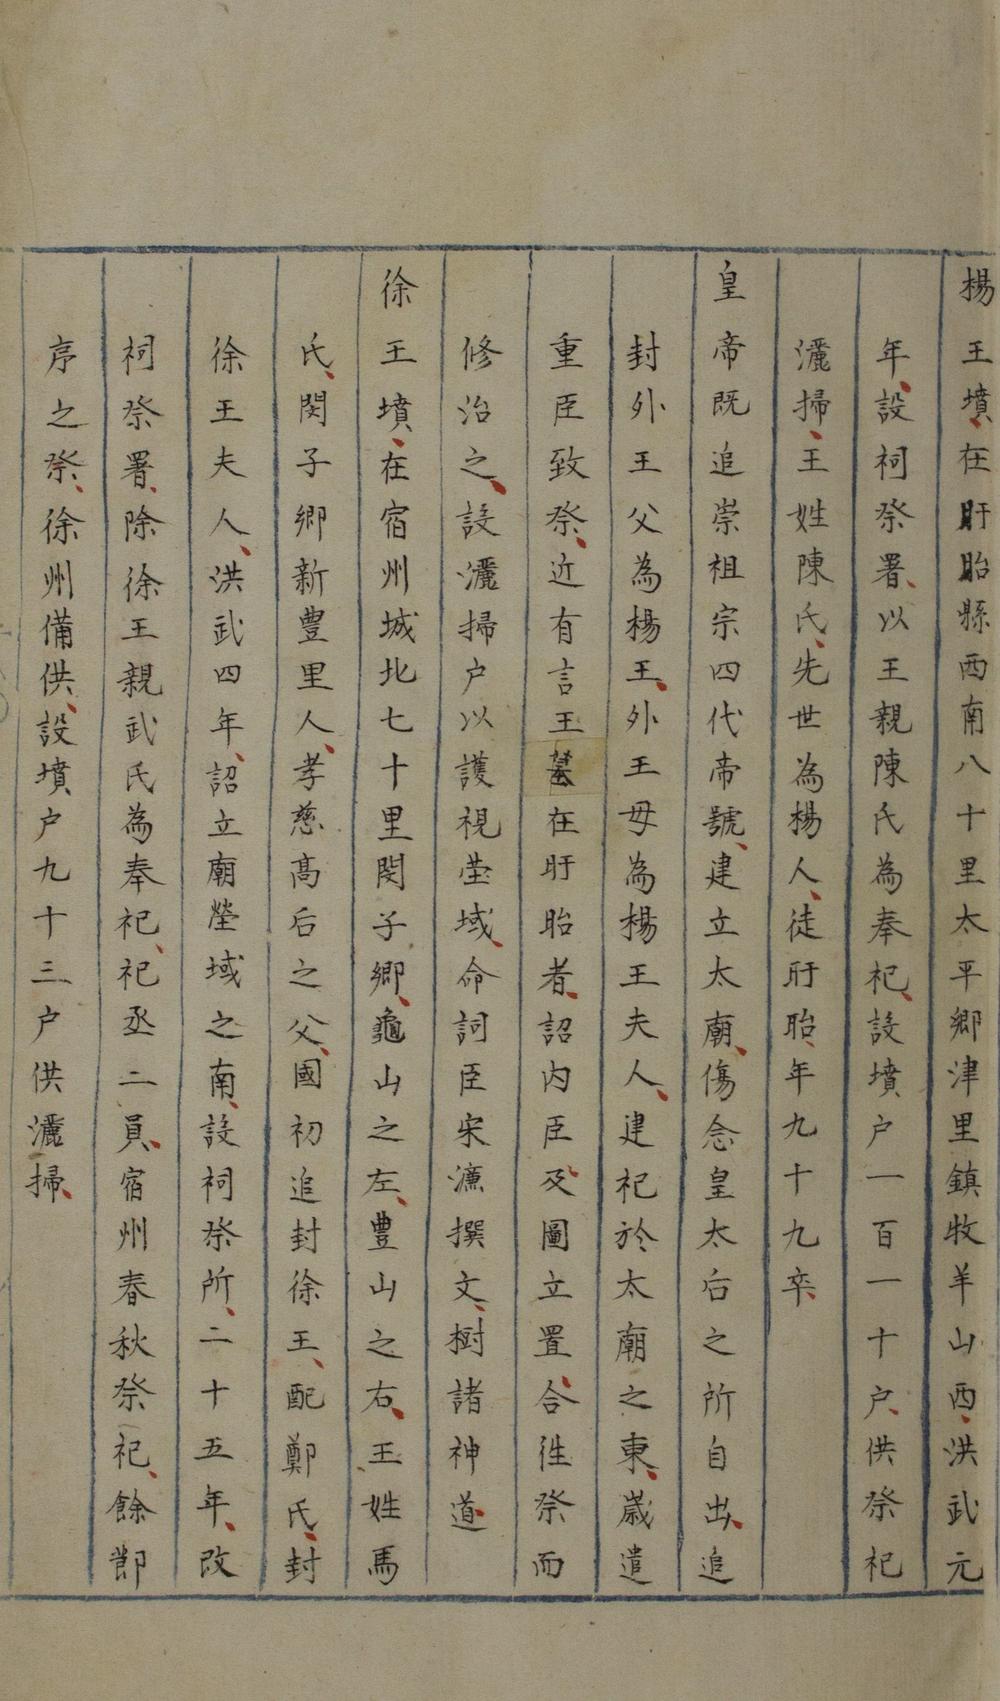 楊王墳、在盱眙縣西南八十里太平鄉津里鎮牧羊山西、洪武元
年、設祠祭署、以王親陳氏為奉祀、設墳户一百一十户、供祭祀
灑掃、王姓陳氏、先世為楊人、徒盱眙、年九十九卒、
皇帝既追崇祖宗四代帝號、建立太廟、傷念皇太后之所自出、追
封外王父為楊王、外王母為楊王夫人、建祀於太廟之東、歲遣
重臣致祭、近有言王墓在盱眙者、詔内臣及圖立置、合徃祭而
修治之、設灑掃户以護視塋域、命詞臣宋濂撰文、樹諸神道、
徐王墳、在宿州城北七十里閔子鄉、龜山之左、豊山之右、王姓馬
氏、閔子鄉新豊里人、孝慈高后之父、國初追封徐王、配鄭氏、封
徐王夫人、洪武四年、詔立廟塋域之南、設祠祭所、二十五年、改
祠祭署、除徐王親武氏為奉祀、祀丞二員、宿州春秋祭祀、餘節
序之祭、徐州備供、設墳户九十三户供灑掃、